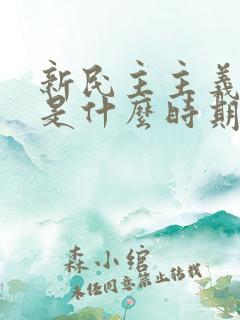 新民主主義
是什麼時期
森小綰
未经同意禁止转载